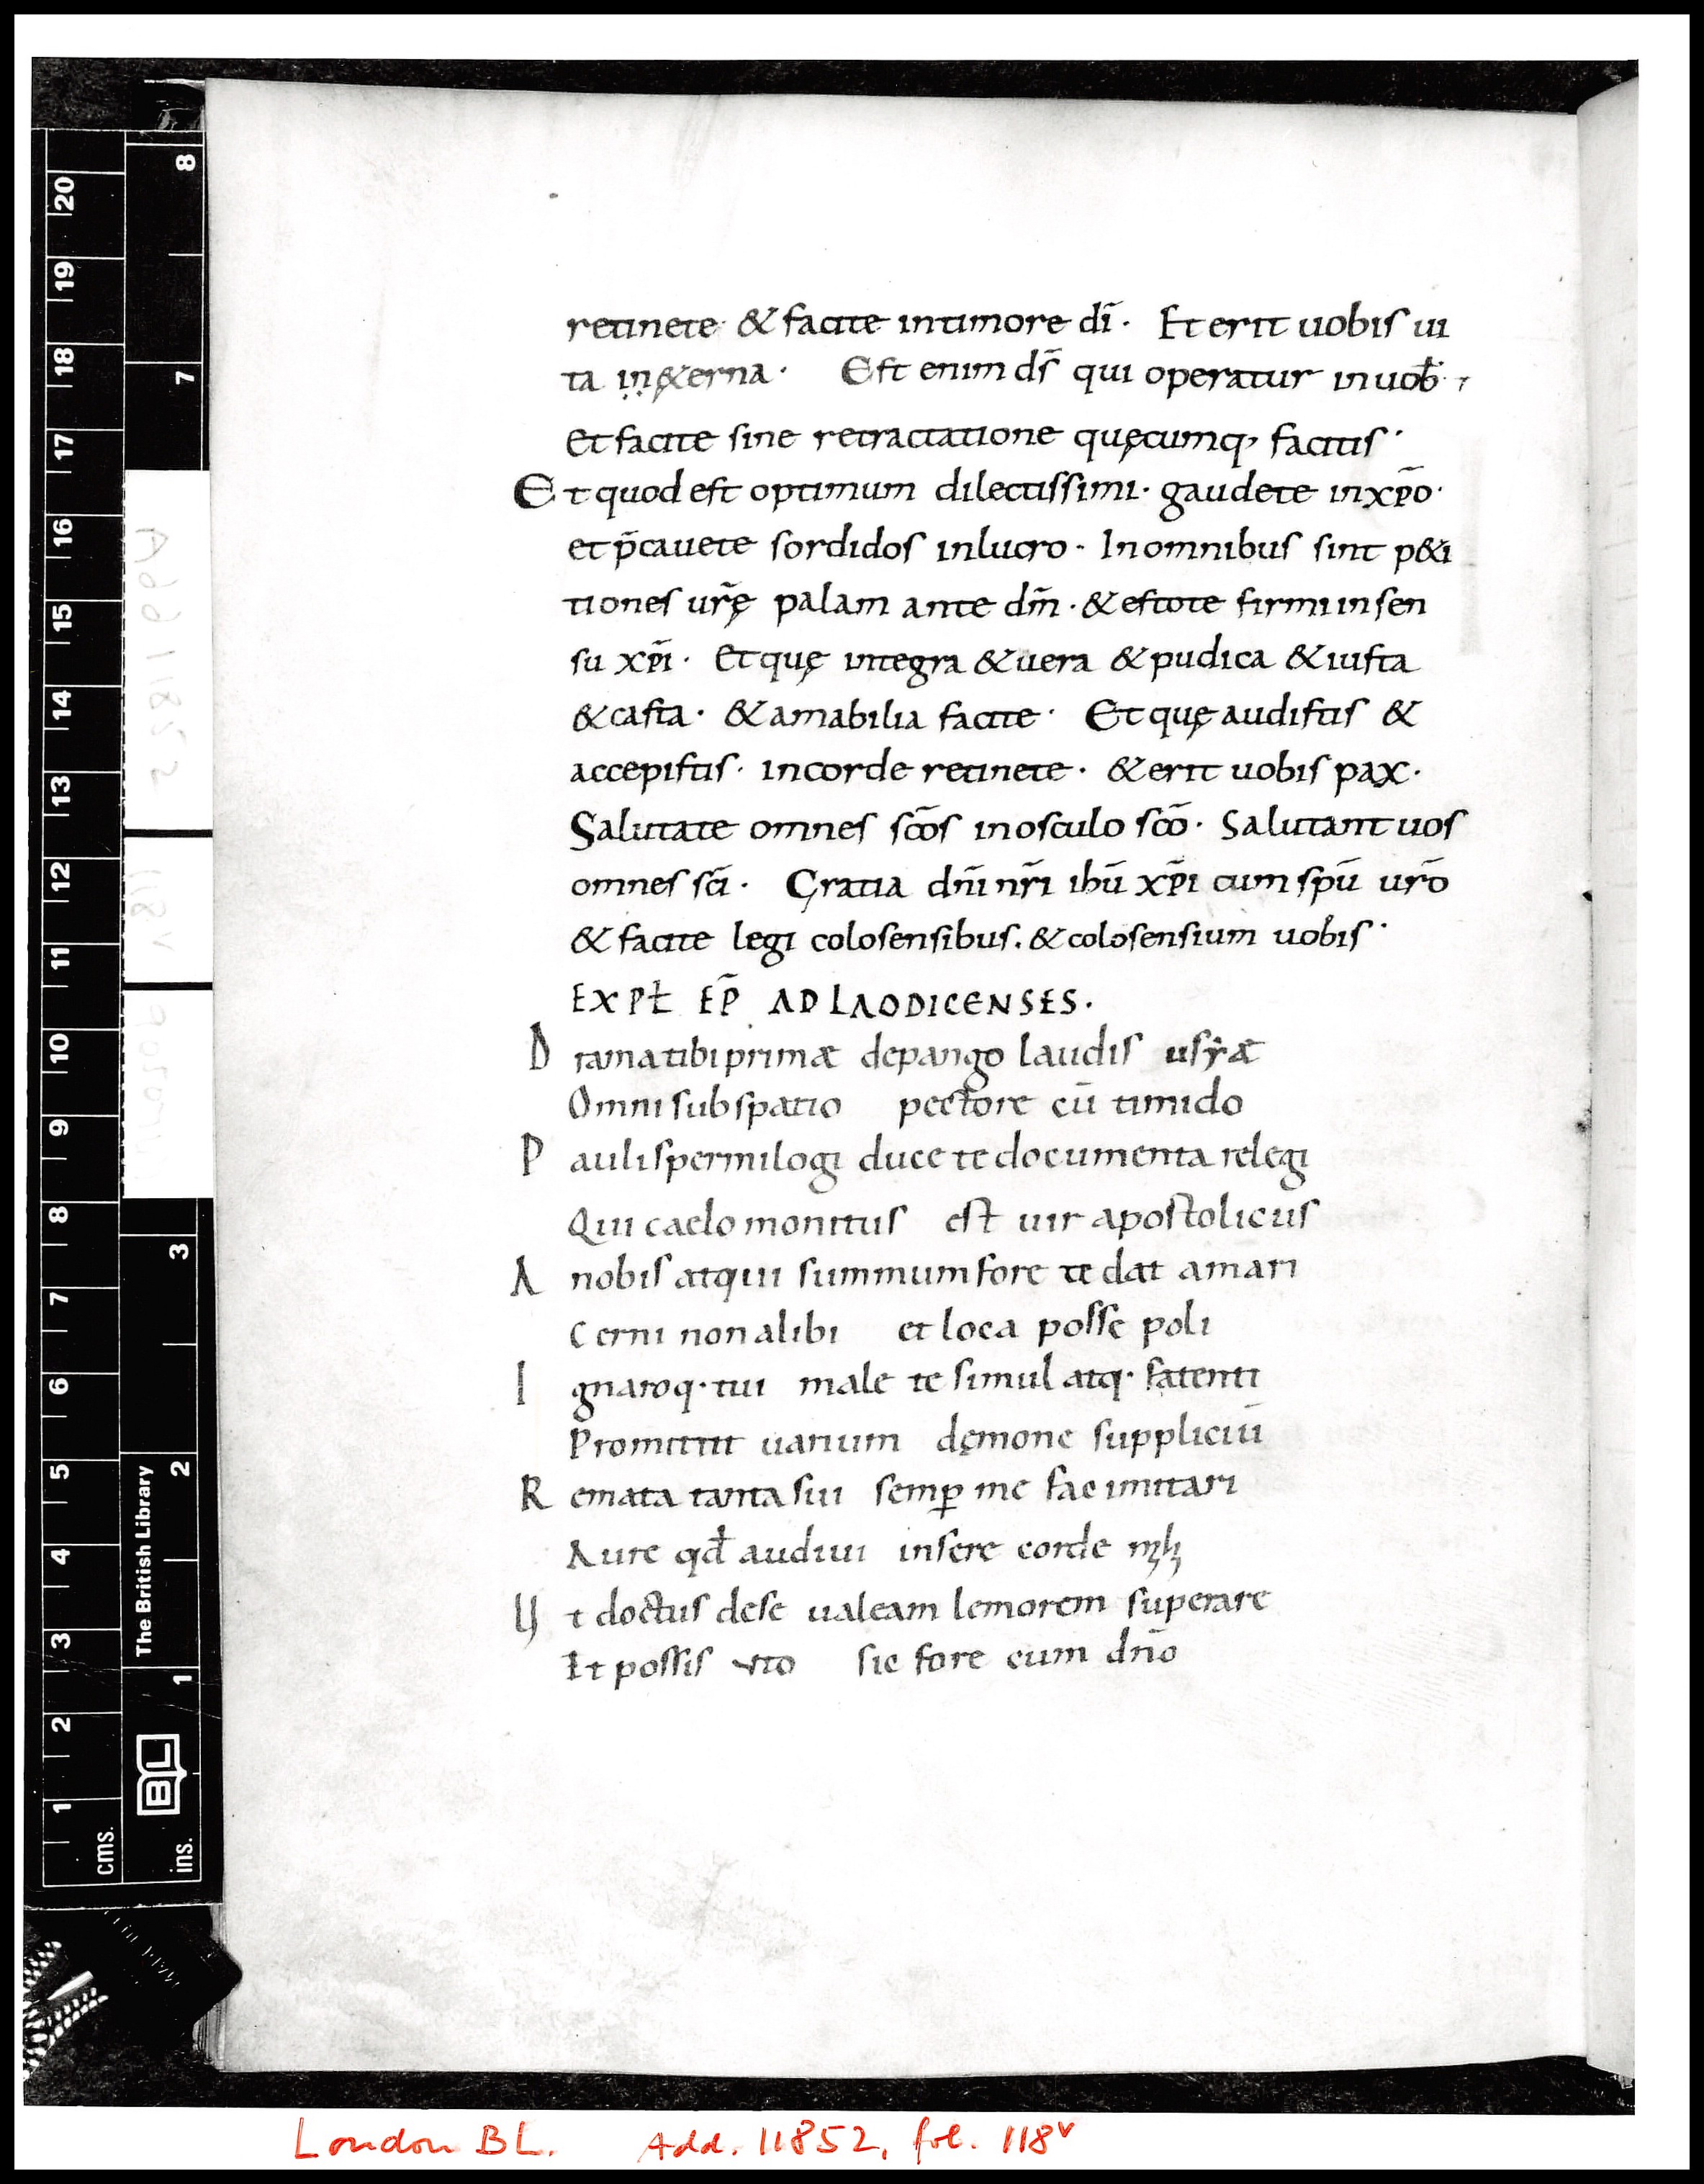 retinete· & facite intimore dī· Et erit uobis ui
ta in&erna· Est enim ds̄ qui operatur inuob·
Et facite sine retractatione quęcumq, facitis·
Et quod est optimum dilectissimi· gaudete inxp̄o·
et p̄cauete sordidos inlucro· Inomnibus sint p&i
tiones ur̄ę palam ante dm̄· & estote firmi insen
su xp̄i· Et quę integra & uera & pudica & iusta
& casta· & amabilia facite· Et quę audistis &
accepistis· incorde retinete· & erit uobis pax·
Salutate omnes sc̄os inosculo sc̄o· Salutant uos
omnes sc̄i· Gratia dn̄i nr̄i ih̄u xp̄i cum sp̄u ur̄o
& facite legi colosensibus. & colosensium uobis·
EXPŁ EP̄ AD LAODICENSES.
D ramatibi primæ depango laudis
Omni sub spatio pectore cū timido
P auli spermilogi duce te documenta relegi
Qui caelo monitus est uir apostolicus
A nobis atqui summum fore te dat amari
Cerni non alibi et loca posse poli
I gnaroq· tui male te simul atq· fatenti
Promittit uarium dęmone suppliciū
R emata tanta sui semp̄ me fac imitari
Aure qđ audiui insere corde
U t doctus dese ualeam lemorem superare
Et possis sic fore cum dn̄o
cms. 1 2 3 4 5 6 7 8 9 10 11 12 13 14 15 16 17 18 19 20
ins. 1 2 3 7 8
BL
The British Library
Add 11852
118v
London BL. Add. 11852, fol. 118v